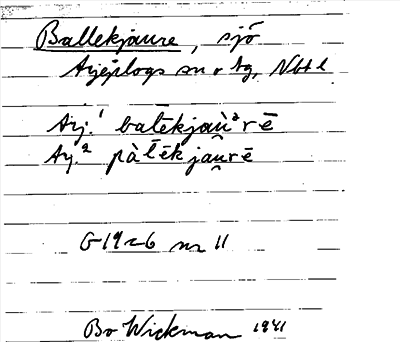 Ballekjaure, sjö
Arjeplogs sn o tg, Nbtl
Arj.¹ balēkjaù²rē
Arj.² pàlēkjau̯rē
G1926 nr 11
Bo Wickman 1941